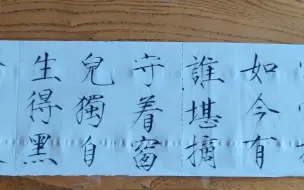 如今有
誰堪摘
守着窗
兒獨自
生得黑